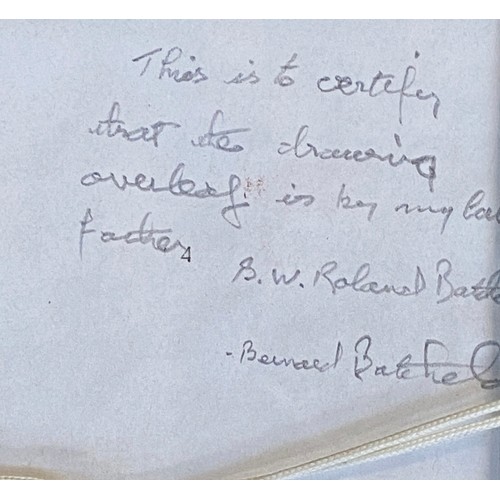 This is to certify
that the drawing
overleaf. is by my
father
4
S. W. Roland Batch
- Bernard Batchelo